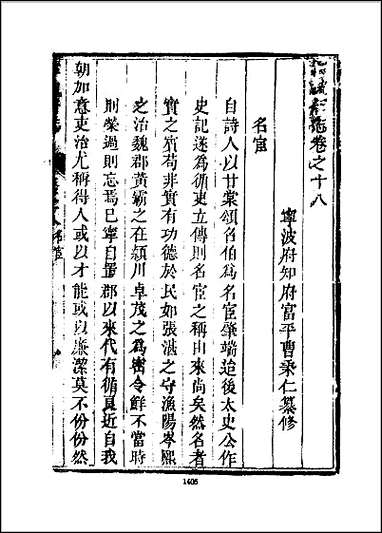 志卷之十八
寧波府知府富平曹秉仁纂修
名宦
自詩人以甘棠頌召伯為名宦肇端迨後太史公作
史記遂為循吏立傳則名宦之稱由來尚矣然名者
實之賓苟非實有功德於民如張湛之守漁陽岑熙
之治魏郡黃霸之在潁川卓茂之為密令鮮不當時
則榮過則忘焉已寧自置郡以來代有循良近自我
朝加意吏治尤稱得人或以才能或以廉潔莫不份份然
名宦
1405